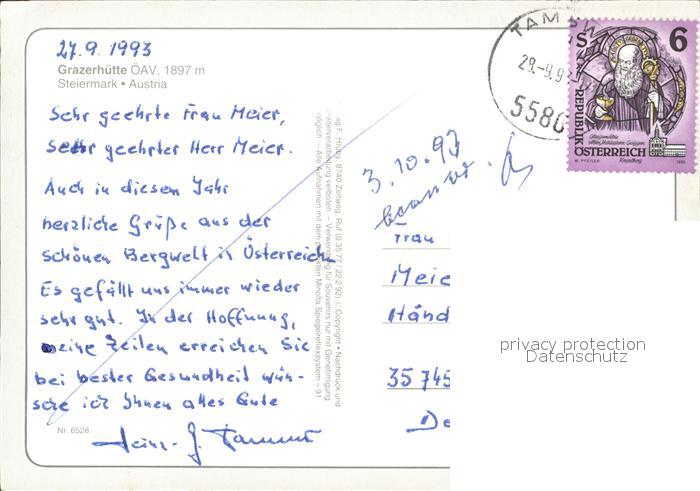 27.9.1993
Grazerhütte ÖAV, 1897 m
Steiermark • Austria
Sehr geehrte Frau Meier,
sehr geehrter Herr Meier.
Auch in diesem Jahr
herzliche Grüße aus der
schönen Bergwelt in Österreich
Es gefällt uns immer wieder
sehr gut. In der Hoffnung,
meine Zeilen erreichen Sie
bei bester Gesundheit wün-
sche ich Ihnen alles Gute
Nr. 6528
TAMSW
29.-9.9
5580
6
S
REPUBLIK
ÖSTERREICH
W. PFEILER
3.10.93
Frau
Meie
Händ
35745
De
privacy protection
Datenschutz
F. Hruby, 8740 Zeltweg, Ruf (0 35 77 / 22 2 92) © Copyright • Nachdruck und
verarbeitung verboten. – Verwendung für Souvenirs nur mit Genehmigung
möglich. – Alle Aufnahmen mit dem perfekten Minolta Spiegelreflexsystem – 91